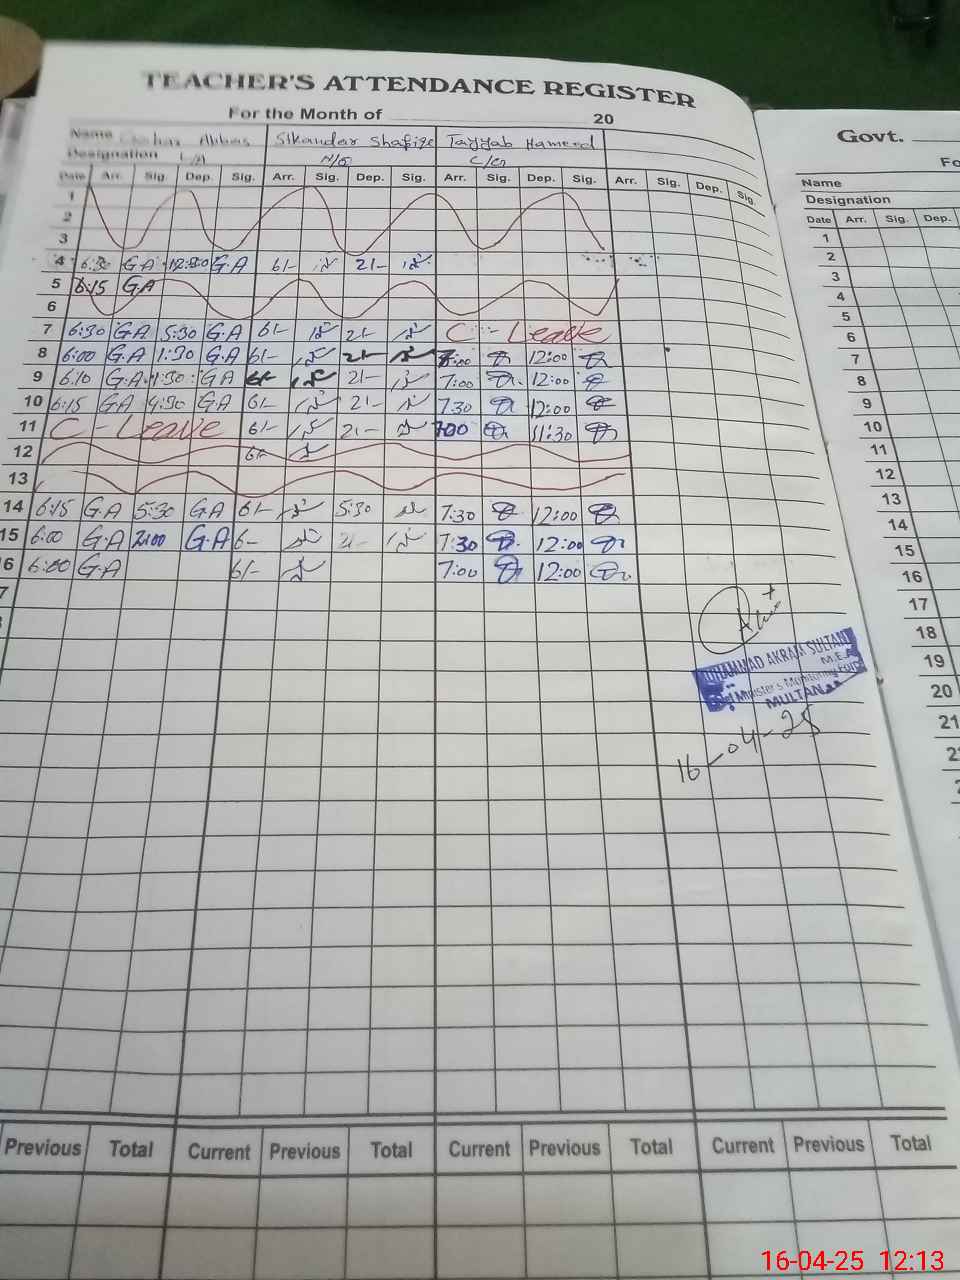 TEACHER'S ATTENDANCE REGISTER
For the Month of 20
Name Abbas Sikandar Shafiqe Tayyab Hameed
Designation L/A N/Q C/Cr
Date Arr. Sig. Dep. Sig. Arr. Sig. Dep. Sig. Arr. Sig. Dep. Sig. Arr. Sig. Dep. Sig.
1
2
3
4 6:30 G.A 12:30 G.A 6/- 2/-
5 6:15 G.A
6
7 6:30 G.A 5:30 G.A 6/- 2/- C - Leave
8 6:00 G.A 1:30 G.A 6/- 2/- 7:00 12:00
9 6:10 G.A 1:30 G.A 6/- 2/- 7:00 12:00
10 6:15 G.A 4:30 G.A 6/- 2/- 7:30 12:00
11 C - Leave 6/- 2/- 7:00 11:30
12 6/-
13
14 6:15 G.A 5:30 G.A 6/- 5:30 7:30 12:00
15 6:00 G.A 2:00 G.A 6- 2/- 7:30 12:00
6 6:00 G.A 6/- 7:00 12:00
7
MUHAMMAD AKRAM SULTAN
M.E.A
Chief Minister's Monitoring Force
MULTAN
16-04-25
Previous Total Current Previous Total Current Previous Total Current Previous Total
Govt.
Fo
Name
Designation
Date Arr. Sig. Dep.
1
2
3
4
5
6
7
8
9
10
11
12
13
14
15
16
17
18
19
20
21
2
2
16-04-25 12:13